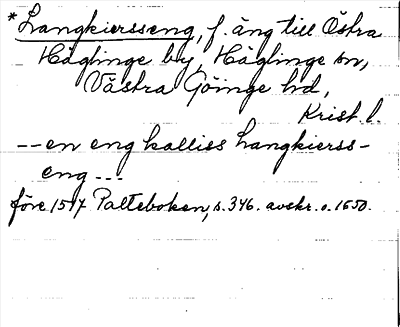 *Langkiersseng, f. äng till Östra
Häglinge by, Häglinge sn,
Västra Göinge hd,
Krist. l.
-- en eng kalliss Langkierss-
eng ---
före 1597 Palteboken, s. 346. avskr. o. 1650.